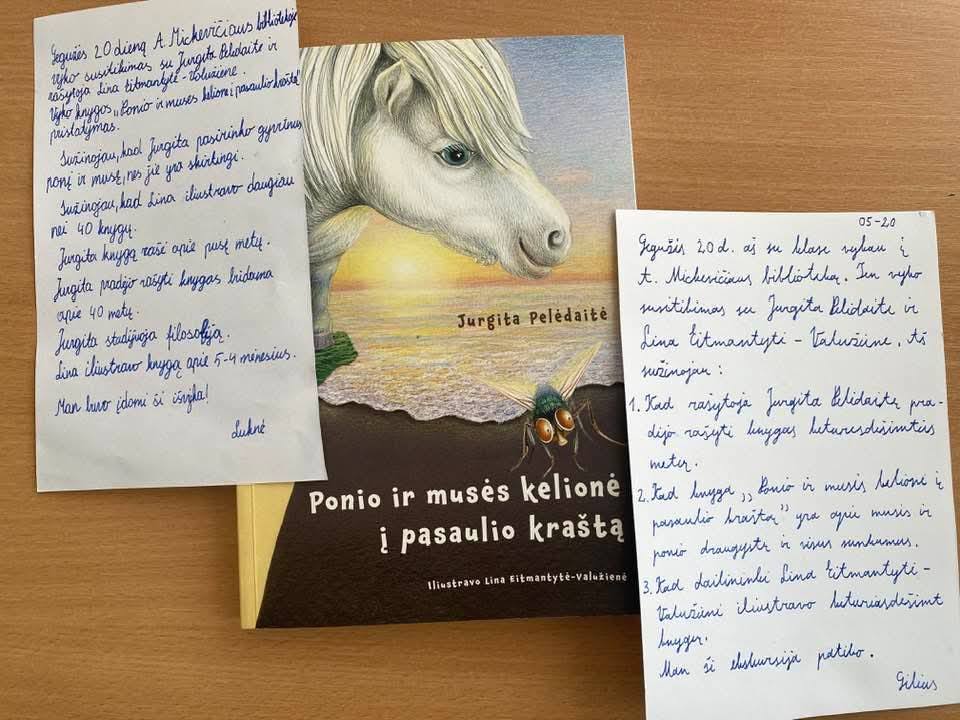 Gegužės 20 dieną A. Mickevičiaus bibliotekoje
vyko susitikimas su Jurgita Pelėdaite ir
rašytoja Lina Eitmantyte-Valužiene.
Vyko knygos „Ponio ir musės kelionė į pasaulio kraštą"
pristatymas.
Sužinojau, kad Jurgita pasirinko gyvūnus
ponį ir musę, nes jie yra skirtingi.
Sužinojau, kad Lina iliustravo daugiau
nei 40 knygų.
Jurgita knygą rašė apie pusę metų.
Jurgita pradėjo rašyti knygas būdama
apie 40 metų.
Jurgita studijuoja filosofiją.
Lina iliustravo knygą apie 5-4 mėnesius.
Man buvo įdomi ši išvyka!
Luknė
Jurgita Pelėdaitė
Ponio ir musės kelionė
į pasaulio kraštą
Iliustravo Lina Eitmantytė-Valužienė
05-20
Gegužės 20 d. aš su klase vykau į
A. Mickevičiaus biblioteką. Ten vyko
susitikimas su Jurgita Pelėdaite ir
Lina Eitmantyte - Valužiene. Aš
sužinojau :
1. Kad rašytoja Jurgita Pelėdaitė pra-
dėjo rašyti knygas keturesdešimties
metų.
2. Kad knyga ,, Ponio ir musės kelionė į
pasaulio kraštą" yra apie musės ir
ponio draugystę ir visus sunkumus.
3. Kad dailininkė Lina Eitmantytė -
Valužienė iliustravo keturiasdešimt
knygų.
Man ši ekskursija patiko.
Gilius